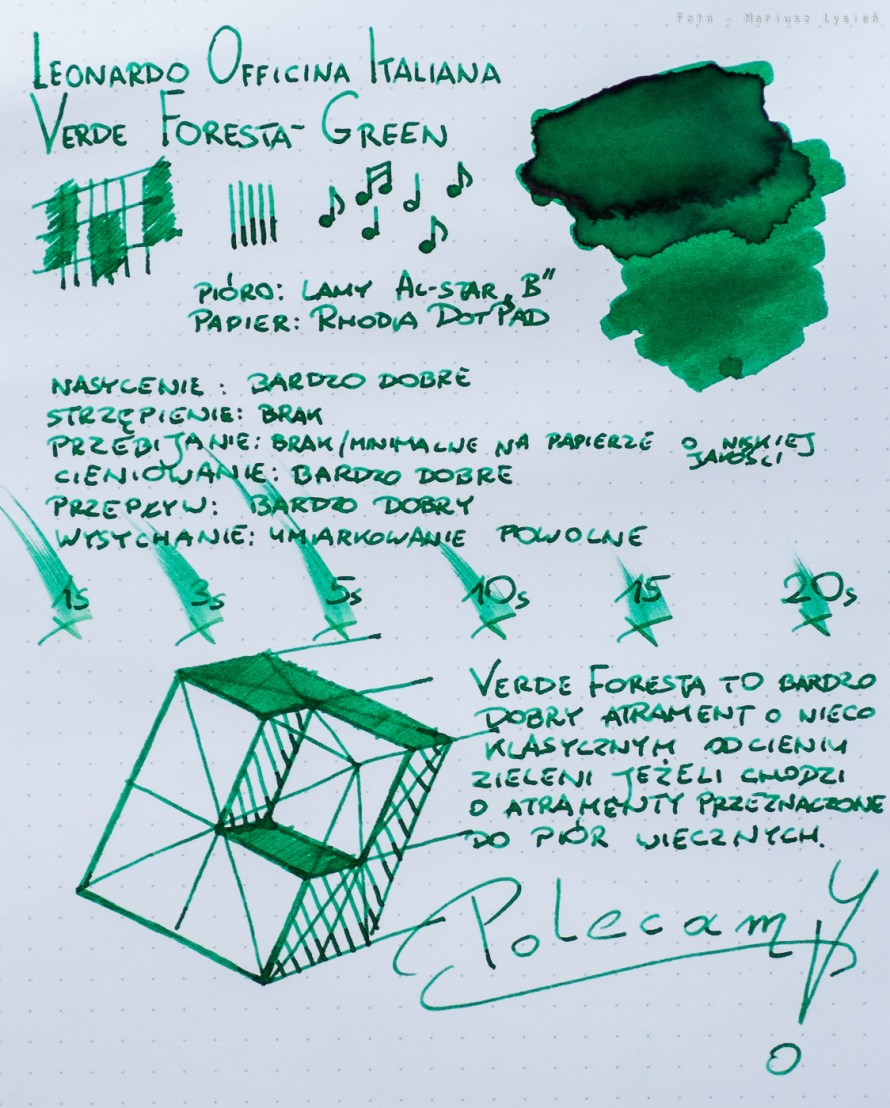 Foto - Mariusz Łysień
LEONARDO OFFICINA ITALIANA
VERDE FORESTA - GREEN
PIÓRO: LAMY AL-STAR „B”
PAPIER: RHODIA DOTPAD
NASYCENIE: BARDZO DOBRE
STRZĘPIENIE: BRAK
PRZEBIJANIE: BRAK/MINIMALNE NA PAPIERZE O NISKIEJ
JAKOŚCI
CIENIOWANIE: BARDZO DOBRE
PRZEPŁYW: BARDZO DOBRY
WYSYCHANIE: UMIARKOWANIE POWOLNE
1s 3s 5s 10s 15 20s
VERDE FORESTA TO BARDZO
DOBRY ATRAMENT O NIECO
KLASYCZNYM ODCIENIU
ZIELENI JEŻELI CHODZI
O ATRAMENTY PRZEZNACZONE
DO PIÓR WIECZNYCH.
Polecamy!